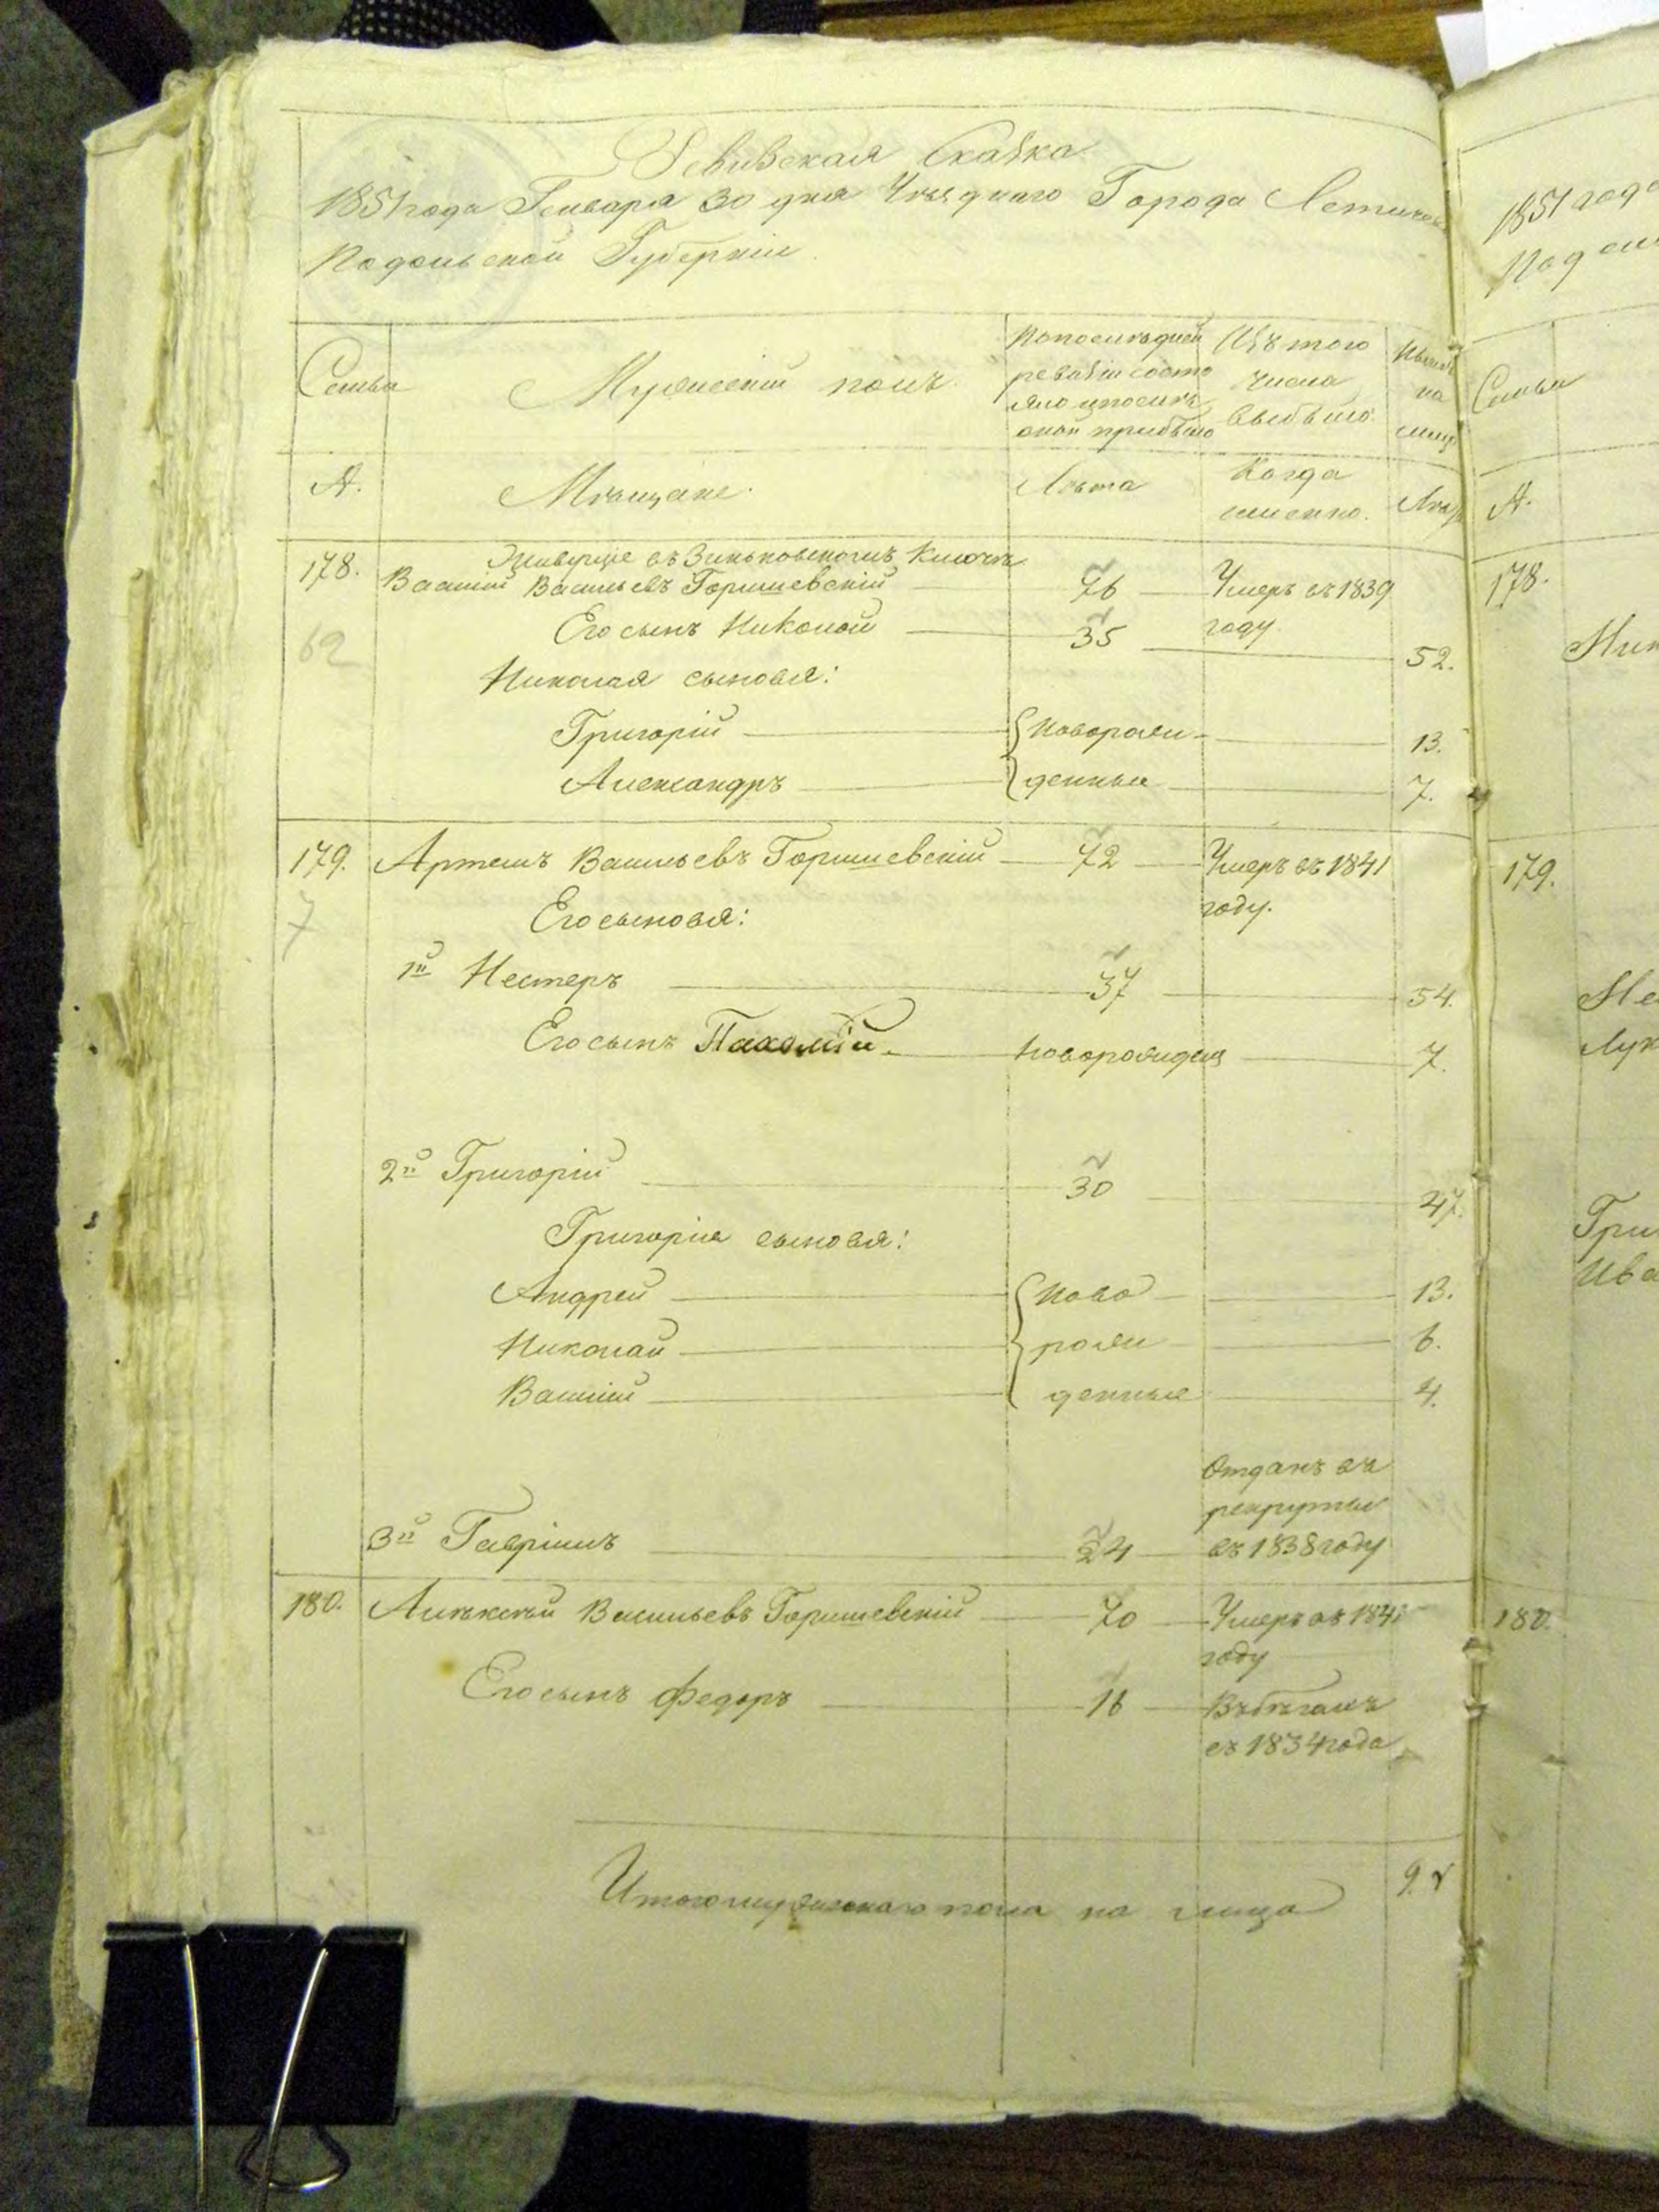 Ревизская Сказка
1851 года Генваря 30 дня Уѣзднаго Города Летичева
Подольской Губерніи.
Семьи
Мужескій полъ.
По последней
ревизіи состо
яло и послѣ
оной прибыло
Изъ того
числа
выбыло.
Нынѣ
на
лице
А.
Мѣщане.
Лѣта
Когда
именно.
Лѣта
Живущіе въ Зиньковскомъ Ключѣ
178. Василій Васильевъ Горишевскій 76 Умеръ въ 1839
году.
62
Его сынъ Николай 35 52.
Николая сыновья:
Григорій новорож 13.
Александръ денные 7.
179. Артемъ Васильевъ Горишевскій 72 Умеръ въ 1841
году.
7
Его сыновья:
1й Нестеръ 37 54.
Его сынъ Пахомій новорожден 7.
2й Григорій 30 47.
Григорія сыновья:
Андрей ново 13.
Николай рож 6.
Василій денные 4.
Отданъ въ
рекруты
3й Гавріилъ 24 въ 1838 году
180. Алексѣй Васильевъ Горишевскій 70 Умеръ въ 1841
году
Его сынъ Федоръ 16 Въ бѣгахъ
съ 1834 года
Итого мужескаго пола на лицо 9.
1851 года
Подоль
Семьи
А.
178.
179.
Лук
Гри
Ива
180.